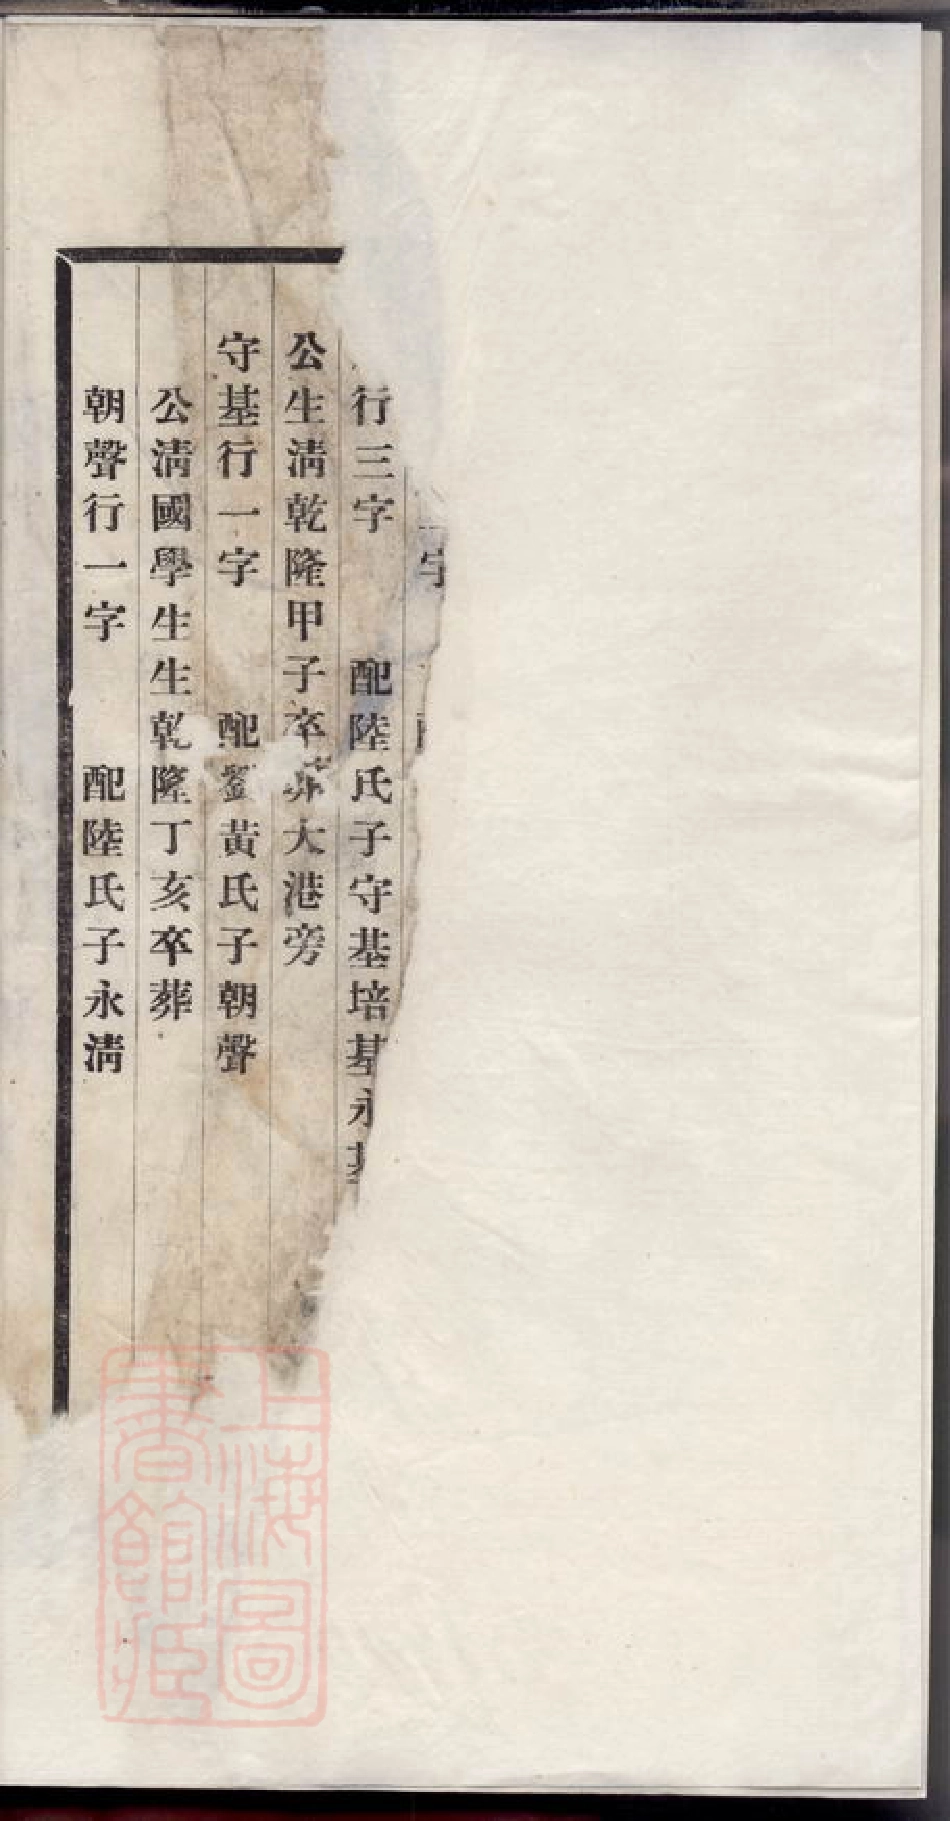 字
行三字　配陸氏子守基培基永基
公生淸乾隆甲子卒葬大港旁
守基行一字　配劉黃氏子朝聲
公淸國學生生乾隆丁亥卒葬
朝聲行一字　配陸氏子永淸
上海圖書館藏